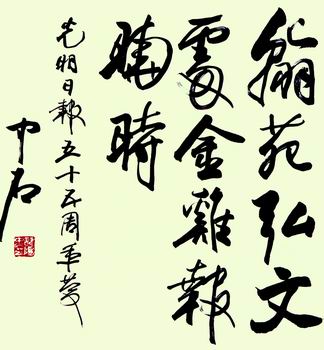 翰苑弘文
處金雞報
曉時
光明日報五十五周年慶
中石